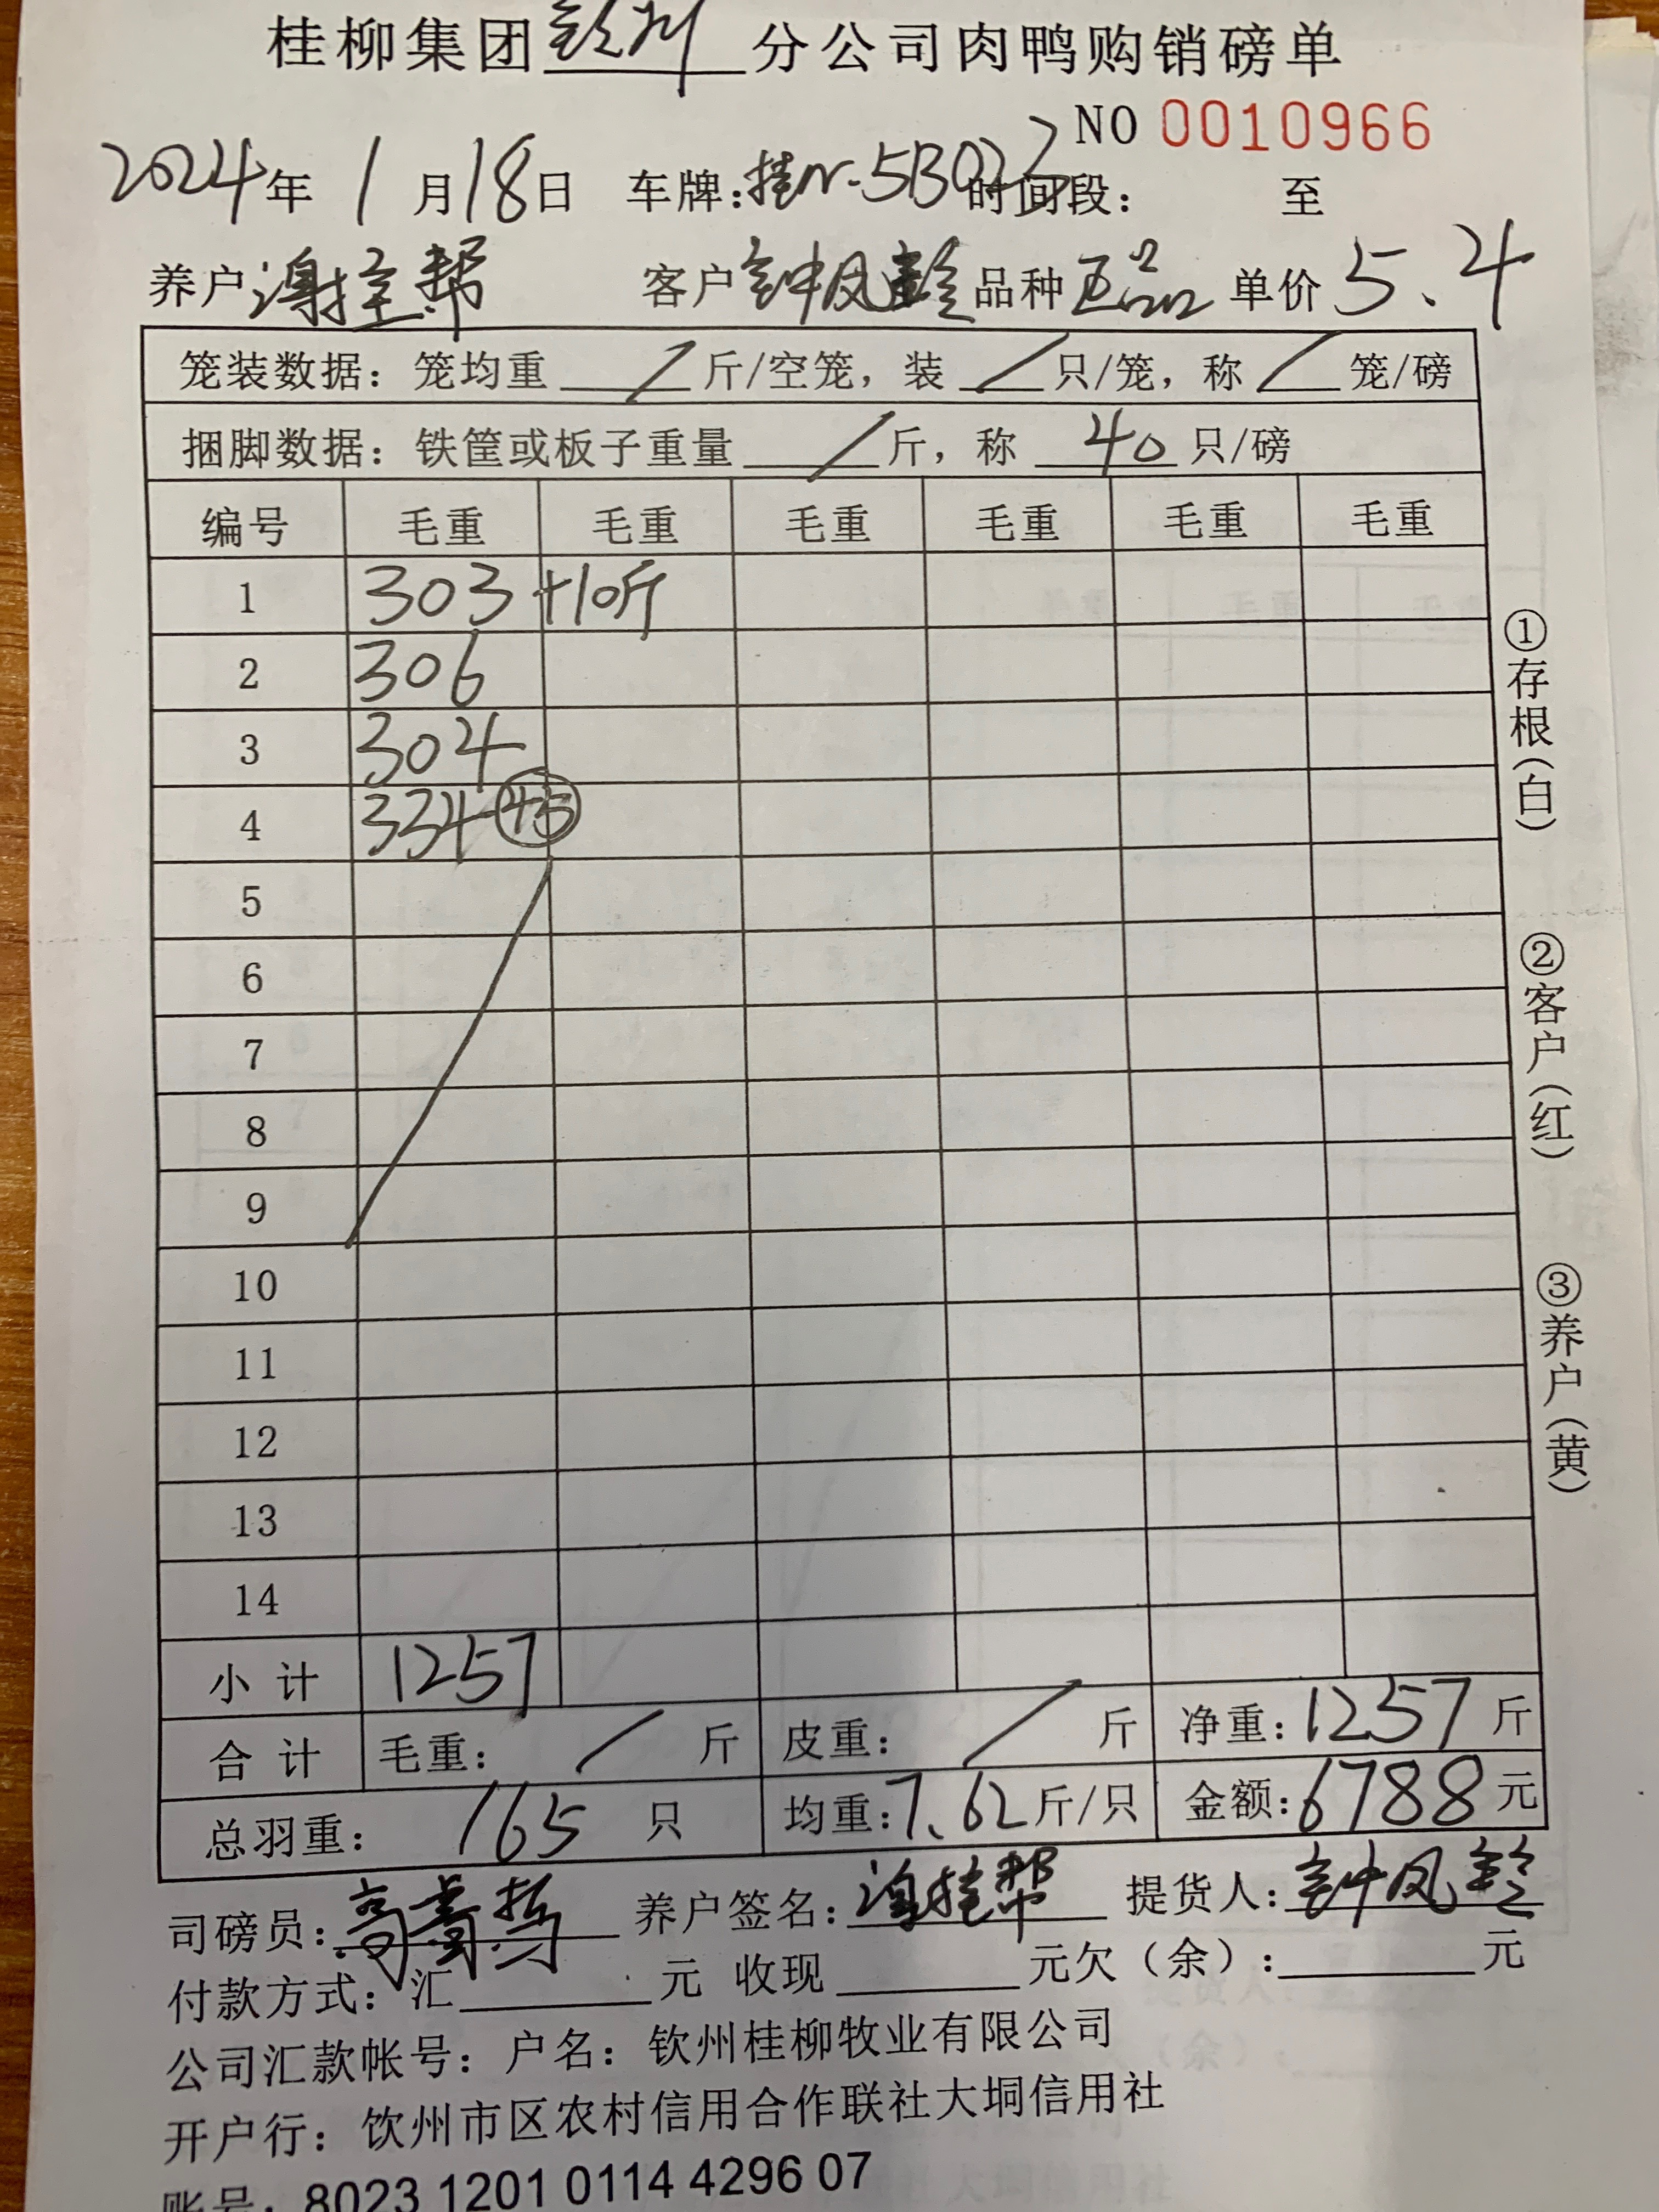 桂柳集团钦州分公司肉鸭购销磅单
NO 0010966
2024年 1月18日 车牌:桂N-5B023 时间段: 至
养户 谢挂帮 客户 钟凤玲 品种 正品 单价 5.4
笼装数据: 笼均重 / 斤/空笼, 装 / 只/笼, 称 / 笼/磅
捆脚数据: 铁筐或板子重量 / 斤, 称 40 只/磅
编号 毛重 毛重 毛重 毛重 毛重 毛重
1 303 +10斤
2 306
3 304
4 334 45
5
6
7
8
9
10
11
12
13
14
小计 1257
合计 毛重: / 斤 皮重: / 斤 净重: 1257 斤
总羽重: 165 只 均重: 7.62 斤/只 金额: 6788 元
司磅员: 高 养户签名: 谢挂帮 提货人: 钟凤玲
付款方式: 汇 元 收现 元欠(余): 元
公司汇款帐号: 户名: 钦州桂柳牧业有限公司
开户行: 钦州市区农村信用合作联社大垌信用社
账号: 8023 1201 0114 4296 07
①存根(白)
②客户(红)
③养户(黄)